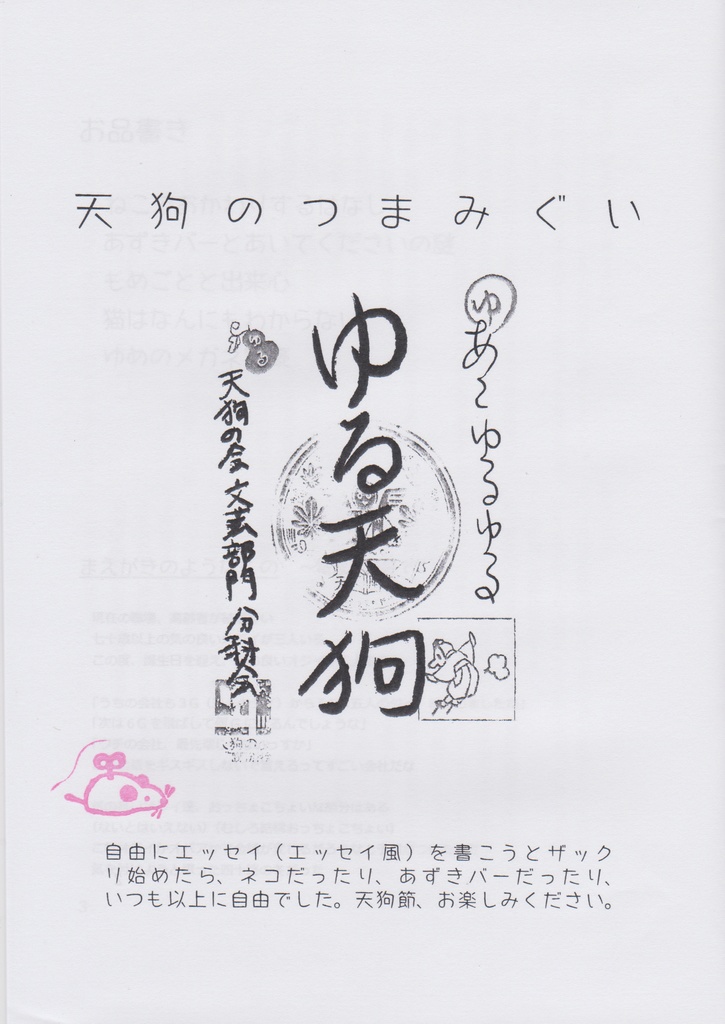 天狗のつまみぐい
ゆ
あくゆるゆる
ゆる天狗
ゆる
天狗の会文芸部門分科会
自由にエッセイ（エッセイ風）を書こうとザック
リ始めたら、ネコだったり、あずきバーだったり、
いつも以上に自由でした。天狗節、お楽しみください。